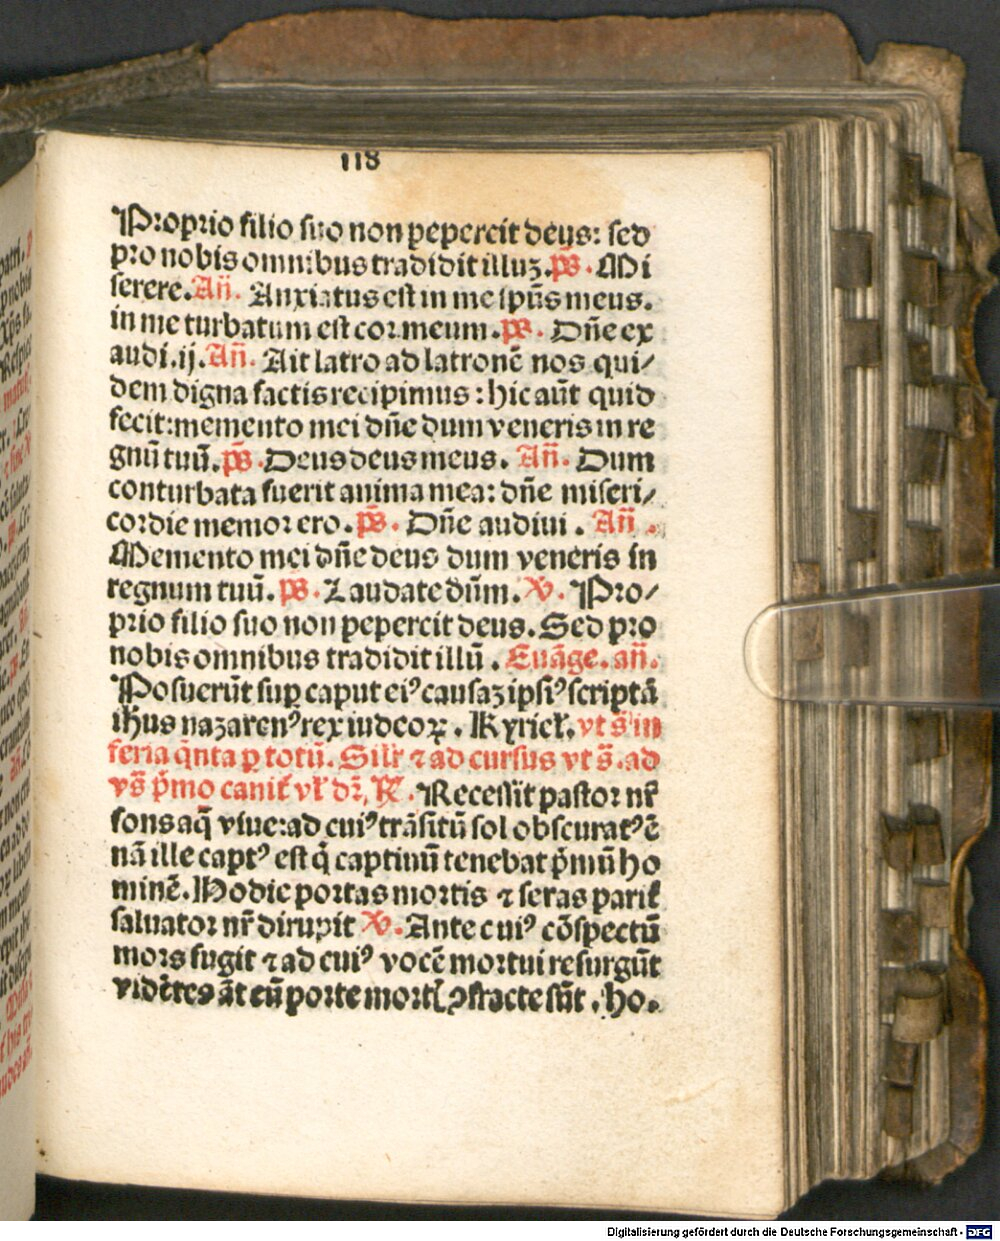 118
Proprio filio suo non pepercit deus: sed
pro nobis omnibus tradidit illuz. p̄s. Mi
serere. Añ. Anxiatus est in me spūs meus.
in me turbatum est cor meum. ps. Dñe ex
audi. ij. Añ. Ait latro ad latronē nos qui/
dem digna factis recipimus: hic aūt quid
fecit: memento mei dñe dum veneris in re
gnū tuū. p̄s. Deus deus meus. Añ. Dum
conturbata fuerit anima mea: dñe miseri/
cordie memor ero. p̄s. Dñe audiui. Añ.
Memento mei dñe deus dum veneris in
regnum tuū. ps. Laudate dūm. V. Pro/
prio filio suo non pepercit deus. Sed pro
nobis omnibus tradidit illū. Euāge. añ.
Posuerūt sup caput eiꝰ causaz ipsiꝰ scriptā
ihūs nazarenꝰ rex iudeoꝝ. Kyriel. vt s̄ in
feria q̄nta p totū. Silr ⁊ ad cursus vt s̄. ad
vs̄ p̄mo canit vr dr̄, R. Recessit pastor nr̄
fons aq̄ viue: ad cuiꝰ trāsitū sol obscuratꝰ ē
nā ille captꝰ est q̇ captiuū tenebat p̄mū ho
minē. Hodie portas mortis ⁊ seras parit
saluator nr̄ dirupit V. Ante cuiꝰ cōspectū
mors fugit ⁊ ad cuiꝰ vocē mortui resurgūt
vidētes āt eū porte mortꝭ ꝯfracte sūt. ho.
Digitalisierung gefördert durch die Deutsche Forschungsgemeinschaft - DFG